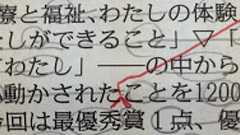 療と福祉、わたしの体験
たしができること」▽「
わたし」――の中から
動かされたことを1200
回は最優秀賞1点、優